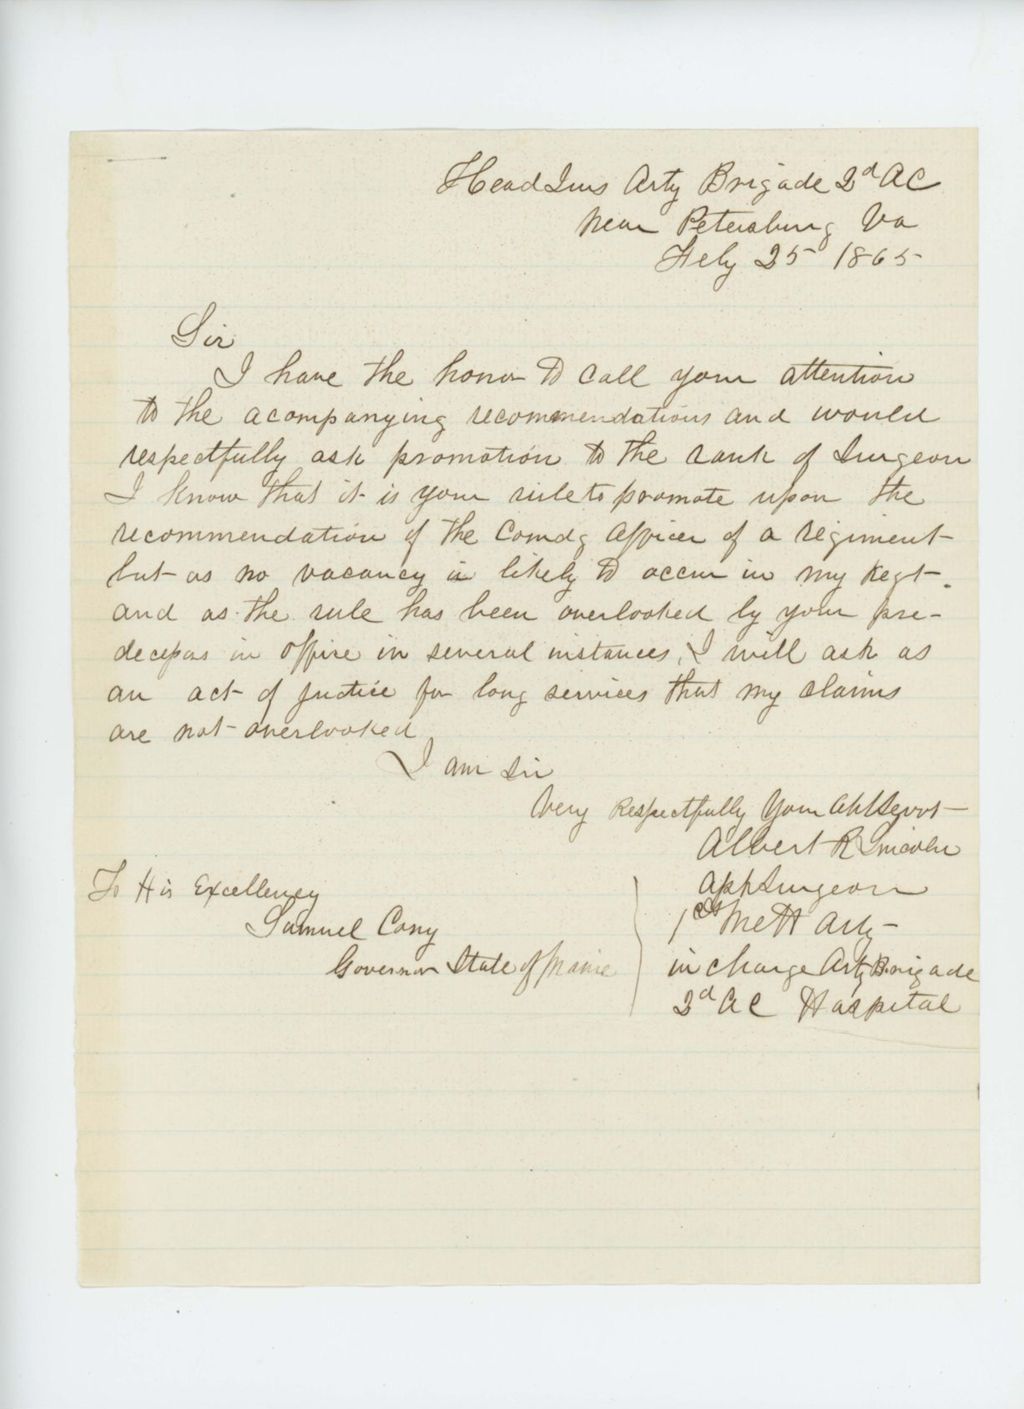 Head Qurs Arty Brigade 2d A C
Near Petersburg Va
Feby 25 1865
Sir
I have the honor to call your attention
to the acompanying recommendations and would
respectfully ask promotion to the rank of Surgeon
I know that it is your rule to promote upon the
recommendation of the Comdg Officer of a regiment
but as no vacancy is likely to occur in my Regt.
and as the rule has been overlooked by your pre-
decessor in office in several instances, I will ask as
an act of justice for long services that my claims
are not overlooked
I am Sir
Very Respectfully Your Obt Servt
Albert R Lincoln
Asst Surgeon
1st Me H Arty
in charge Arty Brigade
2d A C Hospital
To His Excellency
Samuel Cony
Governor State of Maine